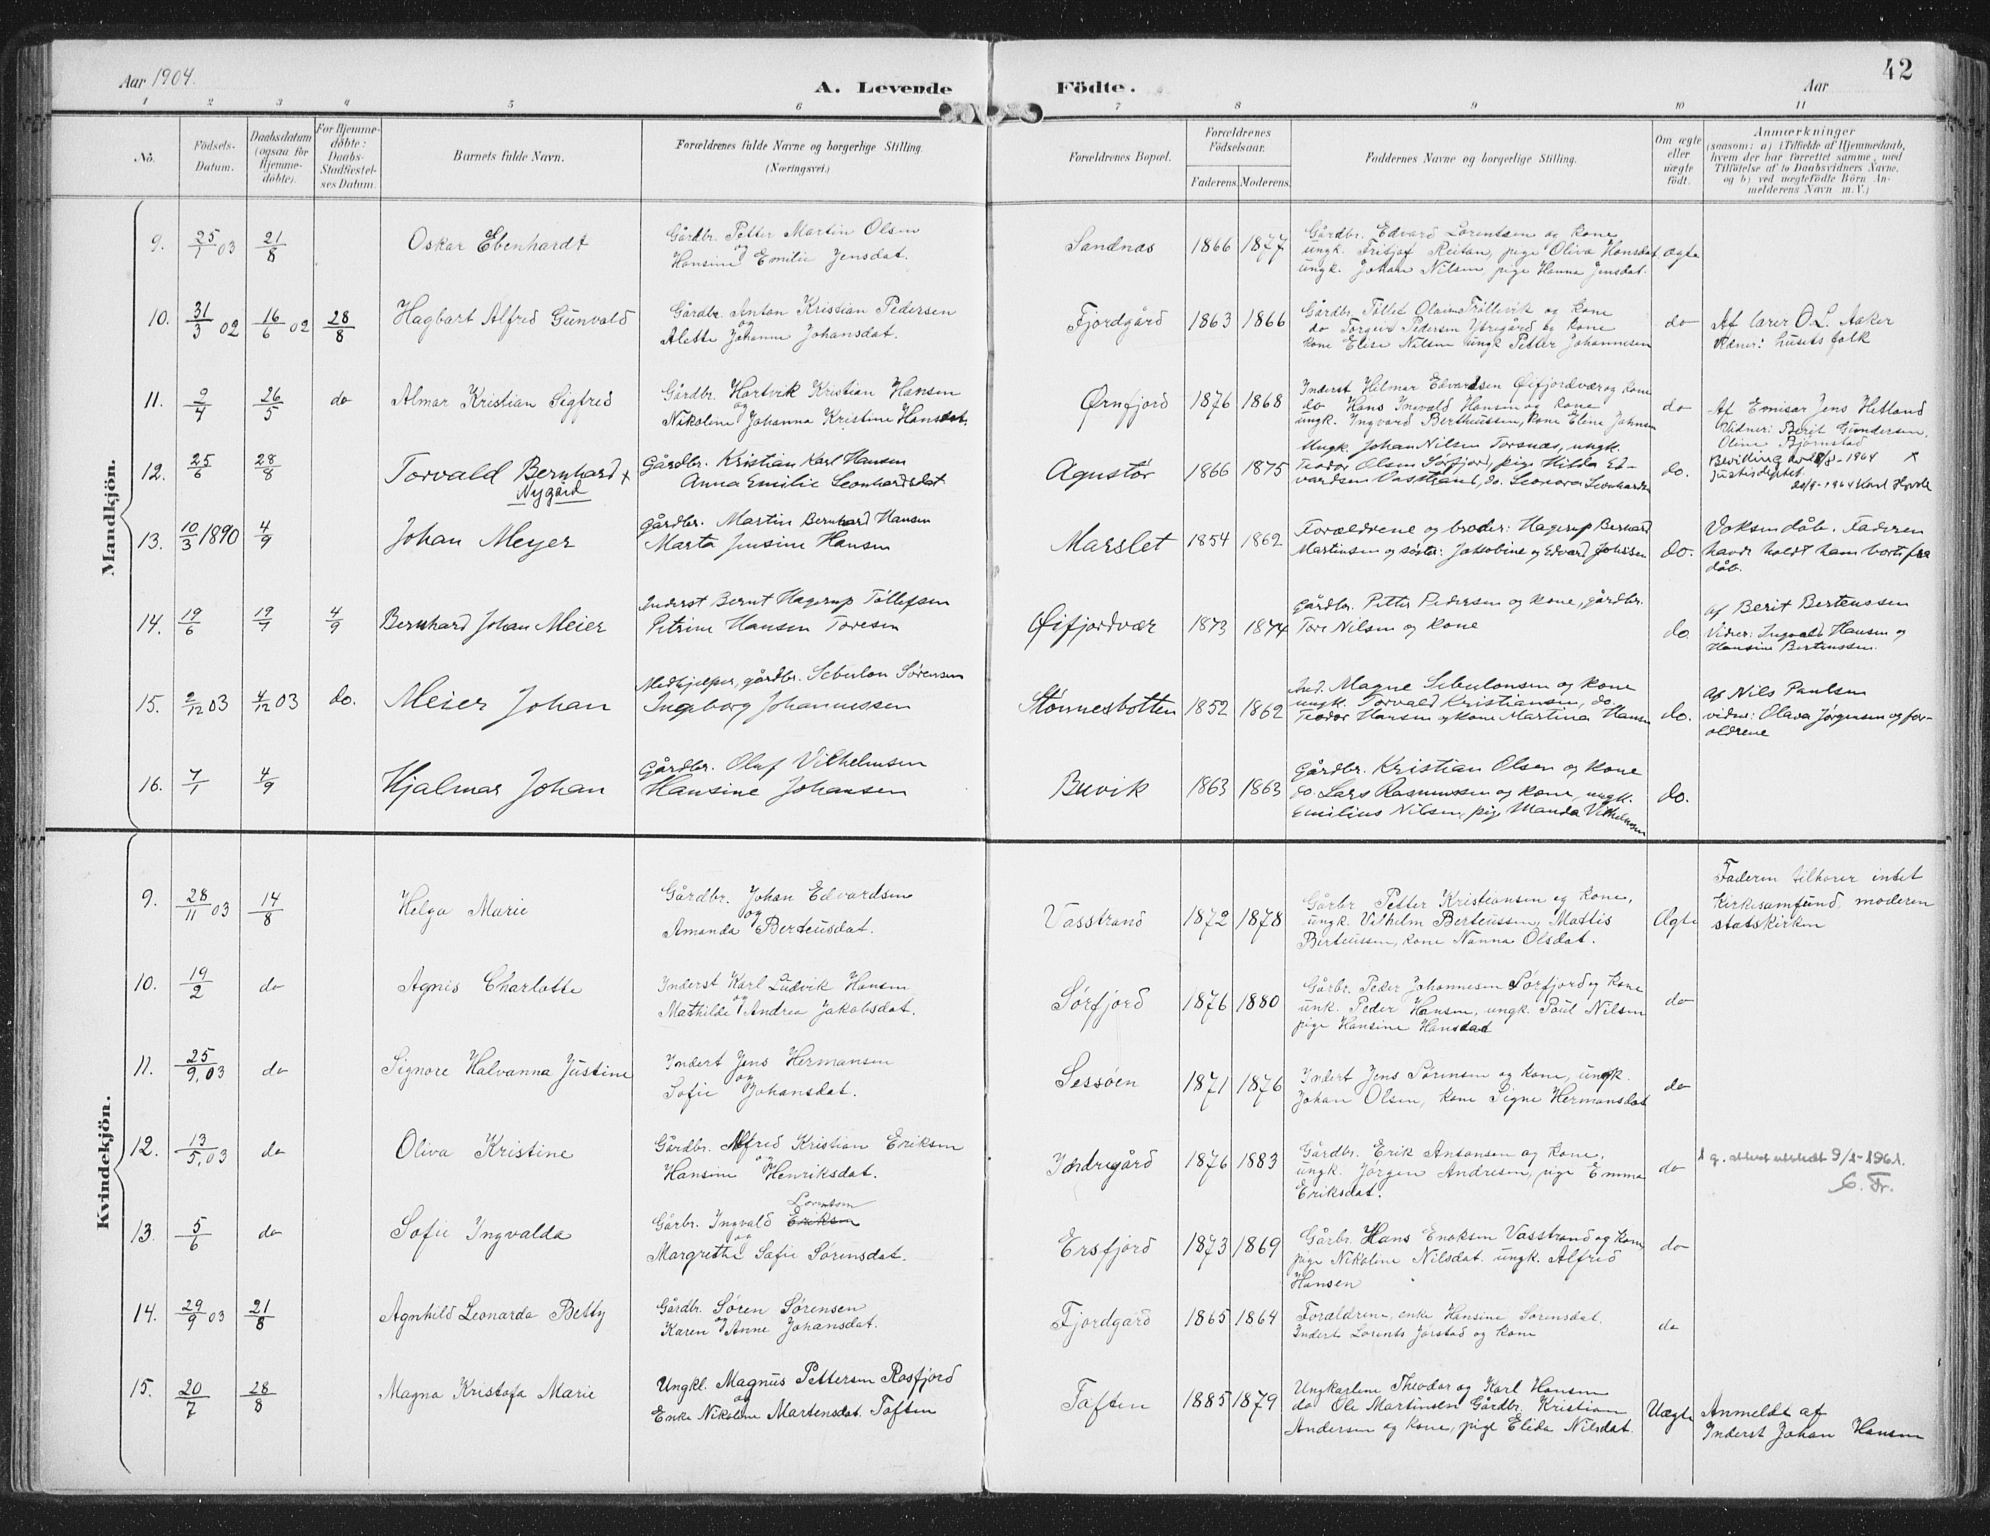 Aar 1904.
A. Levende Födte.
Aar
42
1 2 3 4 5 6 7 8 9 10 11
No.
Födsels-
Datum.
Daabsdatum
(ogsaa for
Hjemme-
döbte).
For Hjemme-
döbte:
Daabs-
Stadfæstel-
ses Datum.
Barnets fulde Navn.
Forældrenes fulde Navne og borgerlige Stilling.
(Næringsvei.)
Forældrenes Bopæl.
Forældrenes
Födselsaar.
Faderens. Moderens.
Faddernes Navne og borgerlige Stilling.
Om ægte
eller
uægte
födt.
Anmærkninger
(saasom: a) i Tilfælde af Hjemmedaab,
hvem der har forrettet samme, med
Tilföielse af to Daabsvidners Navne,
og b) ved uægtefödte Börn An-
melderens Navn m. V.)
Mandkjön.
9. 25/1 03 21/8 Oskar Ebenhardt
Gårdbr. Petter Martin Olsen
og
Hansine Emilie Jensdat.
Sandnæs 1866 1877
Gårdbr. Edvard Lorentsen og kone
ungk. Fritjof Reitan, pige Oliva Hansdat
ungk. Johan Nilsen, pige Hanna Jensdat.
ægte
10. 31/3 02 16/6 02 28/8 Hagbart Alfred Gunvald
Gårdbr. Anton Kristian Pedersen
og
Alette Johanne Johansdat.
Fjordgård 1863 1866
Gårdbr Tillet Olain Trollvik og kone
do Torger Pedersen Ytregård og kone
kone Elise Nilsen ungk Petter Johannesen
do
Af lærer O.L. Aaker
Vidner: husets folk
11. 9/4 26/5 do Almar Kristian Sigfred
Gårdbr. Hartvik Kristian Hansen
og
Nikoline Johanna Kristine Hansdat.
Ørnfjord 1876 1868
Inderst Hilmar Edvardsen Øifjordvær og kone
do Hans Ingvald Hansen og kone
ungk. Ingvard Bertheussen, kone Eline Johnsen
do
Af Emisær Jens Hetland
Vidner: Berit Gundersen,
Oline Bjørnstad
12. 25/6 28/8 Torvald Bernhard x
Nygård
Gårdbr. Kristian Karl Hansen
Anna Emilie Leonhardsdat
Agustør 1866 1875
Ungk. Johan Nilsen Torsnæs, ungk.
Teodor Olsen Sørfjord, pige Hilda Ed-
vardsen Vasstrand, do. Leonora Leonhardsen
do.
Bevilling av 1964 x
Justisdeptet
13. 10/3 1890 4/9 Johan Meyer
Gårdbr. Martin Bernhard Hansen
Marta Jensine Hansen
Marslet 1854 1862
Forældrene og broder: Hagerup Bernhard
Martinsen og søster: Jakobine og Edvard Johnsen
do.
Voksen dåb. Faderen
havde holdt ham bort fra
dåb.
14. 19/6 19/7 4/9 Bernhard Johan Meier
Inderst Bernt Hagerup Tollefsen
Petrine Hansen Toresen
Øifjordvær 1873 1874
Gårdbr. Petter Pedersen og kone, gårdbr.
Tore Nilsen og kone
do.
af Berit Berteussen
Vidner: Ingvald Hansen og
Hansine Berteussen.
15. 2/12 03 4/12 03 do. Meier Johan
Medhjelper, gårdbr. Sebulon Sørensen
Ingeborg Johannessen
Stønnesbotten 1852 1862
Ind. Magne Sebulonsen og kone
ungk. Torvald Kristiansen, do.
Teodor Hansen og kone Martina Hansen
do.
af Nils Paulsen
vidner: Olava Jørgensen og for-
ældrene
16. 7/1 4/9 Hjalmar Johan
Gårdbr. Oluf Vilhelmsen
Hansine Johansen
Buvik 1863 1863
Gårdbr. Kristian Olsen og kone
do. Lars Rasmussen og kone, ungk.
Emilius Nilsen, pige Manda Vilhelmsen
do.
Kvindekjön.
9. 28/11 03 14/8 Helga Marie
Gårdbr. Johan Edvardsen
og
Amanda Berteusdat.
Vasstrand 1872 1878
Gårbr Petter Kristiansen og kone,
ungk. Vilhelm Berteussen, Mattis
Berteussen, kone Nanna Olsdat.
Ægte
Faderen tilhører intet
kirkesamfund, moderen
statskirken
10. 19/2 do Agnis Charlotte
Inderst Karl Ludvik Hansen
og
Mathilde Andrea Jakobsdat.
Sørfjord 1876 1880
Gårbr. Peder Johannesen Sørfjord og kone
unk. Peder Hansen, ungk. Paul Nilsen
pige Hansine Hansdat
do
11. 25/9, 03 do Signore Halvanna Justine
Indert Jens Hermansen
og
Sofie Johansdat.
Sessøen 1871 1876
Indert Jens Sørensen og kone, ungk.
Johan Olsen, kone Signe Hermansdat
do
12. 13/5, 03 do Oliva Kristine
Gårdbr. Alfred Kristian Eriksen
og
Hansine Henriksdat.
Indregård 1876 1883
Gårdbr. Erik Antonsen og kone,
ungk. Jørgen Andresen, pige Emma
Eriksdat.
do
utstedt 9/1-1961.
13. 5/6 do Sofie Ingvalda
Lorentsen
Gårbr. Ingvald Eriksen
og
Margrethe Sofie Sørensdat.
Ersfjord 1873 1869
Gårbr. Hans Enoksen Vasstrand og kone,
pige Nikoline Nilsdat. ungk. Alfred
Hansen
do
14. 29/9 03 21/8 Agnhild Leonarda Betty
Gårdbr. Søren Sørensen
og
Karen Anne Johansdat.
Fjordgård 1865 1864
Forældrene, enke Hansine Sørensdat.
Indert Lorents Jørstad og kone
do
15. 20/7 28/8 Magna Kristofa Marie
Ungkl. Magnus Pettersen Rosfjord
og
Enke Nikoline Martensdat. Toften
Toften 1885 1879
Ungkarlene Theodor og Karl Hansen
do Ole Martinsen Gårdbr. Kristian
Andersen og kone, pige Elida Nilsdat.
Uægte
Anmeldt af
Inderst Johan Hansen